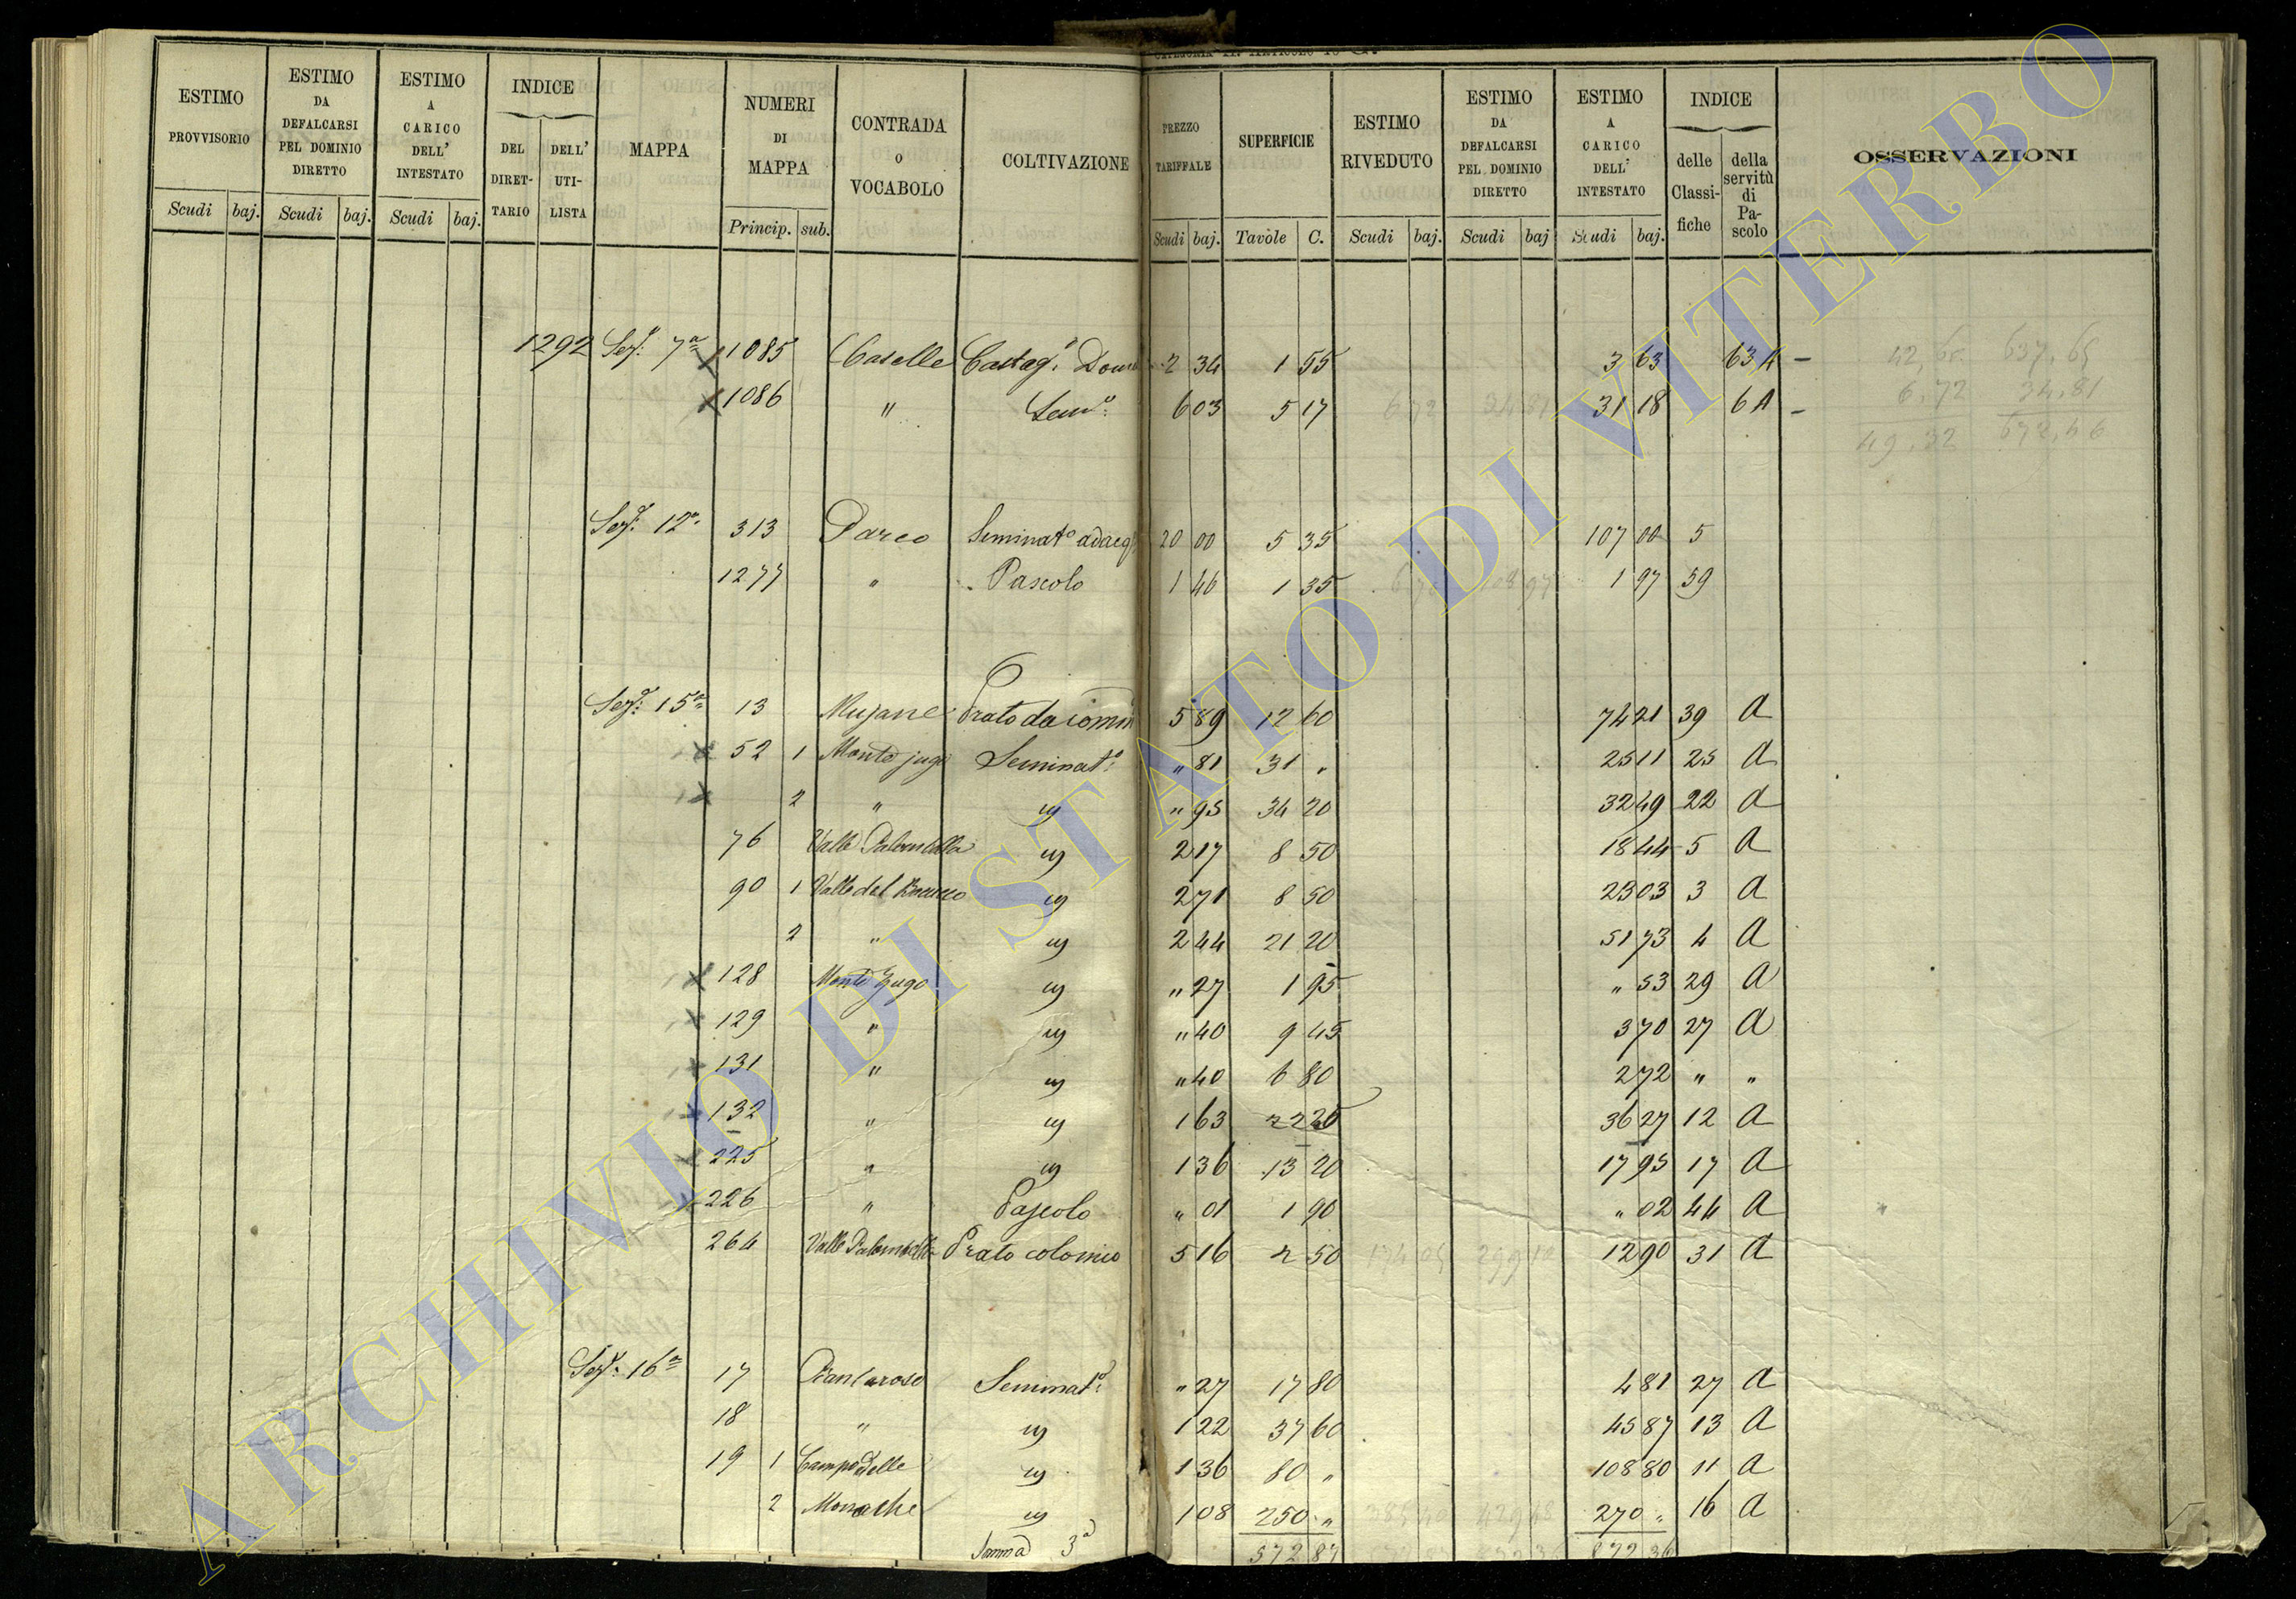 CATEGORIA II. ARTICOLO 10 G.
ESTIMO PROVVISORIO Scudi baj.
ESTIMO DA DEFALCARSI PEL DOMINIO DIRETTO Scudi baj.
ESTIMO A CARICO DELL' INTESTATO Scudi baj.
INDICE DEL DIRET-TARIO DELL' UTI-LISTA
MAPPA
NUMERI DI MAPPA Princip. sub.
CONTRADA O VOCABOLO
COLTIVAZIONE
PREZZO TARIFFALE Scudi baj.
SUPERFICIE Tavole C.
ESTIMO RIVEDUTO Scudi baj.
ESTIMO DA DEFALCARSI PEL DOMINIO DIRETTO Scudi baj
ESTIMO A CARICO DELL' INTESTATO Scudi baj.
INDICE delle Classi-fiche della servitù di Pa-scolo
OSSERVAZIONI
1292 Sez: 7a 1085 Caselle Castag: 2 34 1 55 3 63 63 A 42,60 637,65
1086 " Semo: 6 03 5 17 6 72 34 81 31 18 6 A 6,72 34,81
49,32 672,46
Sez: 12a 313 Parco Seminato adacq 20 00 5 35 107 00 5
1277 " Pascolo 1 46 1 35 1 97 59
Sez: 15a 13 Mujane Prato da 5 89 12 60 74 21 39 A
52 1 Monte jugo Seminato: " 81 31 " 25 11 25 A
2 " " " 95 34 20 32 49 22 A
76 Valle Palombella " 2 17 8 50 18 44 5 A
90 1 Valle del " 2 71 8 50 23 03 3 A
2 " " 2 44 21 20 51 73 4 A
128 Monte Jugo " " 27 1 95 " 53 29 A
129 " " " 40 9 45 3 70 27 A
131 " " " 40 6 80 2 72 " "
132 " " 1 63 22 25 36 27 12 A
225 " " 1 36 13 20 17 95 17 A
226 " Pascolo " 01 1 90 " 02 44 A
264 Valle Palombella Prato colonico 5 16 2 50 174 05 299 10 12 90 31 A
Sez: 16a 17 Seminato: " 27 17 80 4 81 27 A
18 " " 1 22 37 60 45 87 13 A
19 1 Campo delle " 1 36 80 " 108 80 11 A
2 Monache " 1 08 250 " 385 40 429 48 270 " 16 A
Somma 3a 572 87 872 36
ARCHIVIO DI STATO DI VITERBO